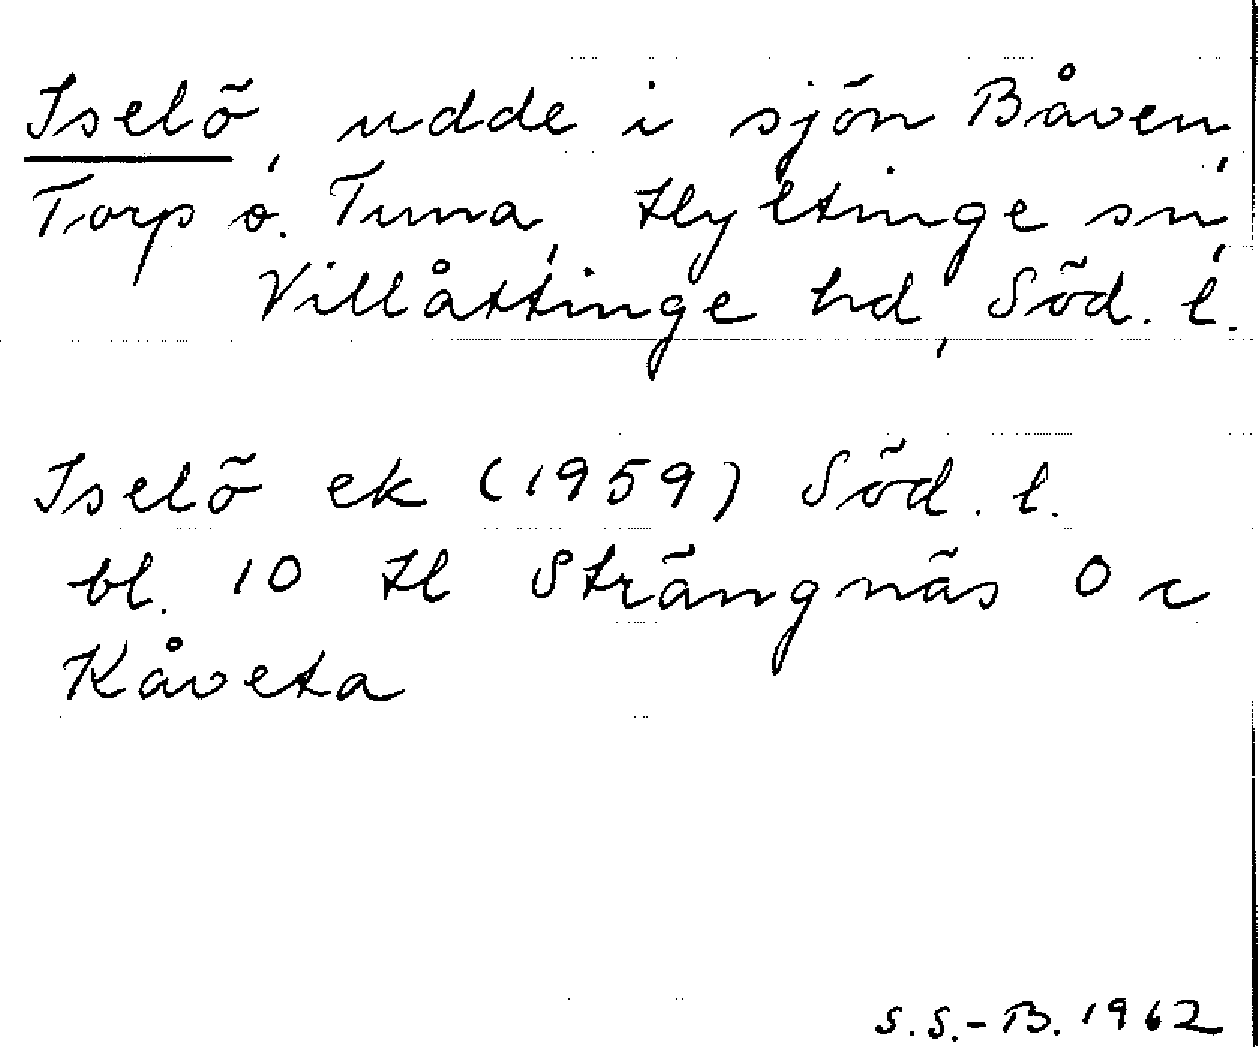 Iselö, udde i sjön Båven,
Torp o. Tuna, Hyltinge sn,
Villåttinge hd, Söd. l.
Iselö ek (1959) Söd. l.
bl. 10 Hl Strängnäs O c
Kåveta
S.S.-B. 1962